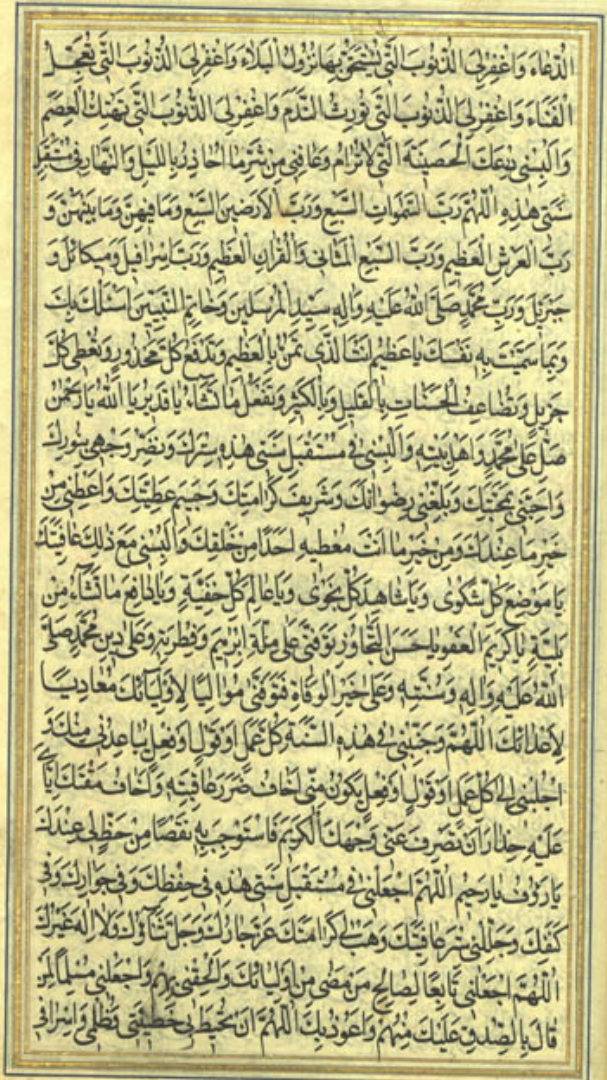 الدُّعاءَ وَاغْفِرْلِيَ الذُّنُوبَ الَّتِي يُسْتَحَقُّ بِهَا نُزُولُ الْبَلاءِ وَاغْفِرْلِيَ الذُّنُوبَ الَّتِي تُعَجِّلُ
الْفَنَاءَ وَاغْفِرْلِيَ الذُّنُوبَ الَّتِي تُورِثُ النَّدَمَ وَاغْفِرْلِيَ الذُّنُوبَ الَّتِي تَهْتِكُ الْعِصَمَ
وَاَلْبِسْنِي دِرْعَكَ الْحَصِينَةَ الَّتِي لا تُرَامُ وَعَافِنِي مِنْ شَرِّ مَا اُحَاذِرُ بِاللَّيْلِ وَالنَّهَارِ فِي مُسْتَقْبَلِ
سَنَتِي هٰذِهِ اَللّٰهُمَّ رَبَّ السَّمٰوَاتِ السَّبْعِ وَرَبَّ الْاَرَضِينَ السَّبْعِ وَمَا فِيهِنَّ وَمَا بَيْنَهُنَّ وَ
رَبَّ الْعَرْشِ الْعَظِيمِ وَرَبَّ السَّبْعِ الْمَثَانِي وَالْقُرْاٰنِ الْعَظِيمِ وَرَبَّ اِسْرَافِيلَ وَمِيكَائِلَ وَ
جَبْرَئِيلَ وَرَبَّ مُحَمَّدٍ صَلَّى اللهُ عَلَيْهِ وَاٰلِهِ سَيِّدِ الْمُرْسَلِينَ وَخَاتِمِ النَّبِيِّينَ اَسْئَلُكَ بِكَ
وَبِمَا سَمَّيْتَ بِهِ نَفْسَكَ يَا عَظِيمُ اَنْتَ الَّذِي تَمُنُّ بِالْعَظِيمِ وَتَدْفَعُ كُلَّ مَحْذُورٍ وَتُعْطِي كُلَّ
جَزِيلٍ وَتُضَاعِفُ الْحَسَنَاتِ بِالْقَلِيلِ وَبِالْكَثِيرِ وَتَفْعَلُ مَا تَشَاءُ يَا قَدِيرُ يَا اَللهُ يَا رَحْمٰنُ
صَلِّ عَلَى مُحَمَّدٍ وَاَهْلِ بَيْتِهِ وَاَلْبِسْنِي فِي مُسْتَقْبَلِ سَنَتِي هٰذِهِ سِتْرَكَ وَنَضِّرْ وَجْهِي بِنُورِكَ
وَاَحِبَّنِي بِمَحَبَّتِكَ وَبَلِّغْنِي رِضْوَانَكَ وَشَرِيفَ كَرَامَتِكَ وَجَسِيمَ عَطِيَّتِكَ وَاَعْطِنِي مِنْ
خَيْرِ مَا عِنْدَكَ وَمِنْ خَيْرِ مَا اَنْتَ مُعْطِيهِ اَحَدًا مِنْ خَلْقِكَ وَاَلْبِسْنِي مَعَ ذٰلِكَ عَافِيَتَكَ
يَا مَوْضِعَ كُلِّ شَكْوٰى وَيَا شَاهِدَ كُلِّ نَجْوٰى وَيَا عَالِمَ كُلِّ خَفِيَّةٍ وَيَا دَافِعَ مَا تَشَاءُ مِنْ
بَلِيَّةٍ يَا كَرِيمَ الْعَفْوِ يَا حَسَنَ التَّجَاوُزِ تَوَفَّنِي عَلَى مِلَّةِ اِبْرٰهِيمَ وَفِطْرَتِهِ وَعَلَى دِينِ مُحَمَّدٍ صَلَّى
اللهُ عَلَيْهِ وَاٰلِهِ وَسُنَّتِهِ وَعَلَى خَيْرِ الْوَفَاةِ فَتَوَفَّنِي مُوَالِيًا لِاَوْلِيَائِكَ مُعَادِيًا
لِاَعْدَائِكَ اَللّٰهُمَّ وَجَنِّبْنِي فِي هٰذِهِ السَّنَةِ كُلَّ عَمَلٍ اَوْ قَوْلٍ اَوْ فِعْلٍ يُبَاعِدُنِي مِنْكَ وَ
اجْلِبْنِي اِلٰى كُلِّ عَمَلٍ اَوْ قَوْلٍ اَوْ فِعْلٍ يَكُونُ مِنِّي اَخَافُ ضَرَرَ عَاقِبَتِهِ وَاَخَافُ مَقْتَكَ اِيَّايَ
عَلَيْهِ حِذَارَ اَنْ تَصْرِفَ عَنِّي وَجْهَكَ الْكَرِيمَ فَاَسْتَوْجِبَ بِهِ نَقْصًا مِنْ حَظٍّ لِي عِنْدَكَ
يَا رَؤُفُ يَا رَحِيمُ اَللّٰهُمَّ اجْعَلْنِي فِي مُسْتَقْبَلِ سَنَتِي هٰذِهِ فِي حِفْظِكَ وَفِي جِوَارِكَ وَفِي
كَنَفِكَ وَجَلِّلْنِي سِتْرَ عَافِيَتِكَ وَهَبْ لِي كَرَامَتَكَ عَزَّ جَارُكَ وَجَلَّ ثَنَاؤُكَ وَلَا اِلٰهَ غَيْرُكَ
اَللّٰهُمَّ اجْعَلْنِي تَابِعًا لِصَالِحِ مَنْ مَضٰى مِنْ اَوْلِيَائِكَ وَاَلْحِقْنِي بِهِمْ وَاجْعَلْنِي مُسْلِمًا لِمَنْ
قَالَ بِالصِّدْقِ عَلَيْكَ مِنْهُمْ وَاَعُوذُ بِكَ اَللّٰهُمَّ اَنْ تُحِيطَ بِي خَطِيئَتِي وَظُلْمِي وَاِسْرَافِي